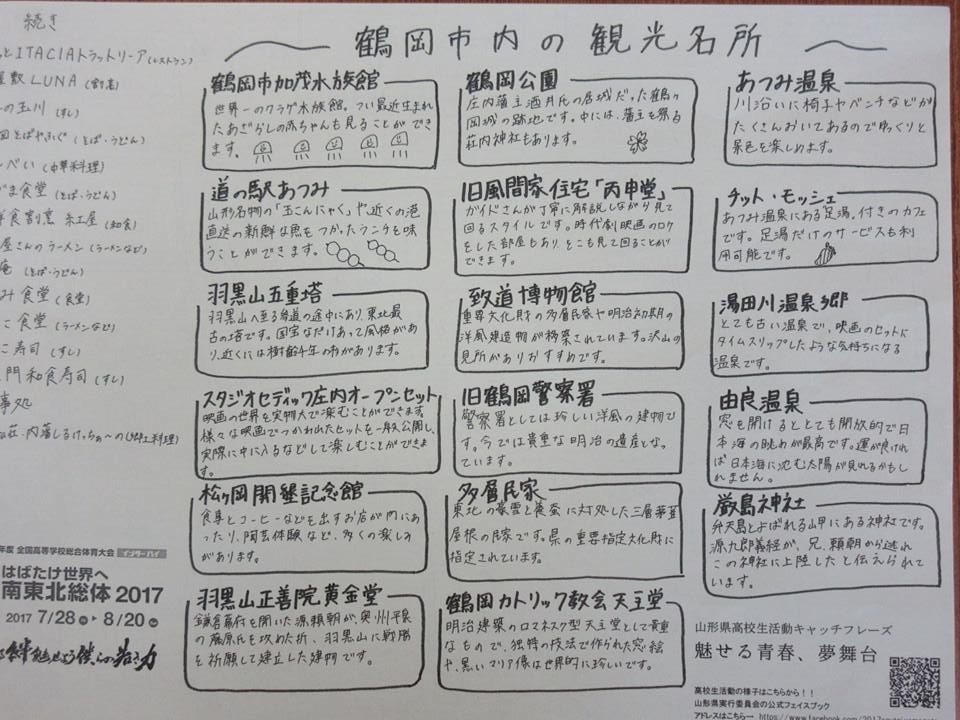 続き
とITACIAトラットリーア(レストラン)
敷LUNA(割高)
の玉川(すし)
(そば・うどん)
べい(中華料理)
ま食堂(そば・うどん)
食割烹 紅屋(和食)
屋さんのラーメン(ラーメンなど)
庵(そば・うどん)
み食堂(食堂)
こ食堂(ラーメンなど)
こ寿司(すし)
門和食寿司(すし)
事処
年度 全国高等学校総合体育大会 インターハイ
はばたけ世界へ
南東北総体 2017
2017 7/28㊎▶8/20㊐
鶴岡市内の観光名所
鶴岡市加茂水族館
世界一のクラゲ水族館。つい最近生まれ
たあざらしの赤ちゃんも見ることができ
ます。
道の駅あつみ
山形名物の「玉こんにゃく」や、近くの港
直送の新鮮な魚をつかったランチを味
うことができます。
羽黒山五重塔
羽黒山へ至る参道の途中にあり、東北最
古の塔です。国宝なだけあって風格があ
り、近くには樹齢千年の杉があります。
スタジオセディック庄内オープンセット
映画の世界を実物大で楽しむことができます。
様々な映画でつかわれたセットを一般公開し、
実際に中に入るなどして楽しむことができま
す。
松ヶ岡開墾記念館
食事とコーヒーなどを出すお店が門にあ
ったり、陶芸体験など、多くの楽しみ
があります。
羽黒山正善院黄金堂
鎌倉幕府を開いた源頼朝が、奥州平泉
の藤原氏を攻めた折、羽黒山に戦勝
を祈願して建立した建物です。
鶴岡公園
庄内藩主酒井氏の居城だった鶴ヶ
岡城の跡地です。中には、藩主を祭る
荘内神社もあります。
旧風間家住宅「丙申堂」
ガイドさんが丁寧に解説しながら見て
回るスタイルです。時代劇映画のロケ
をした部屋もあり、そこも見て回ることが
できます。
致道博物館
重要文化財の多層民家や明治初期の
洋風建造物が移築されています。沢山の
見所がありおすすめです。
旧鶴岡警察署
警察署としては珍しい洋風の建物で
す。今では貴重な明治の遺産となっ
ています。
多層民家
東北の豪雪と養蚕に対処した三層茅葺
屋根の民家です。県の重要指定文化財に
指定されています。
鶴岡カトリック教会天主堂
明治建築のロマネスク型天主堂として貴重
なもので、独特の技法で作られた窓絵
や、黒いマリア像は世界的に珍しいです。
あつみ温泉
川沿いに椅子やベンチなどが
たくさんおいてあるのでゆっくりと
景色を楽しめます。
チット・モッシェ
あつみ温泉にある足湯付きのカフェ
です。足湯だけのサービスも利
用可能です。
湯田川温泉郷
とても古い温泉で、映画のセットに
タイムスリップしたような気持ちになる
温泉です。
由良温泉
窓を開けるととても開放的で日
本海の眺めが最高です。運が良けれ
ば日本海に沈む太陽が見れるかもし
れません。
厳島神社
弁天島とよばれる山甲にある神社です。
源九郎義経が、兄、頼朝から逃れ
この神社に上陸したと伝えられて
います。
山形県高校生活動キャッチフレーズ
魅せる青春、夢舞台
高校生活動の様子はこちらから!!
山形県実行委員会の公式フェイスブック
アドレスはこちら→ https://www.facebook.com/2017